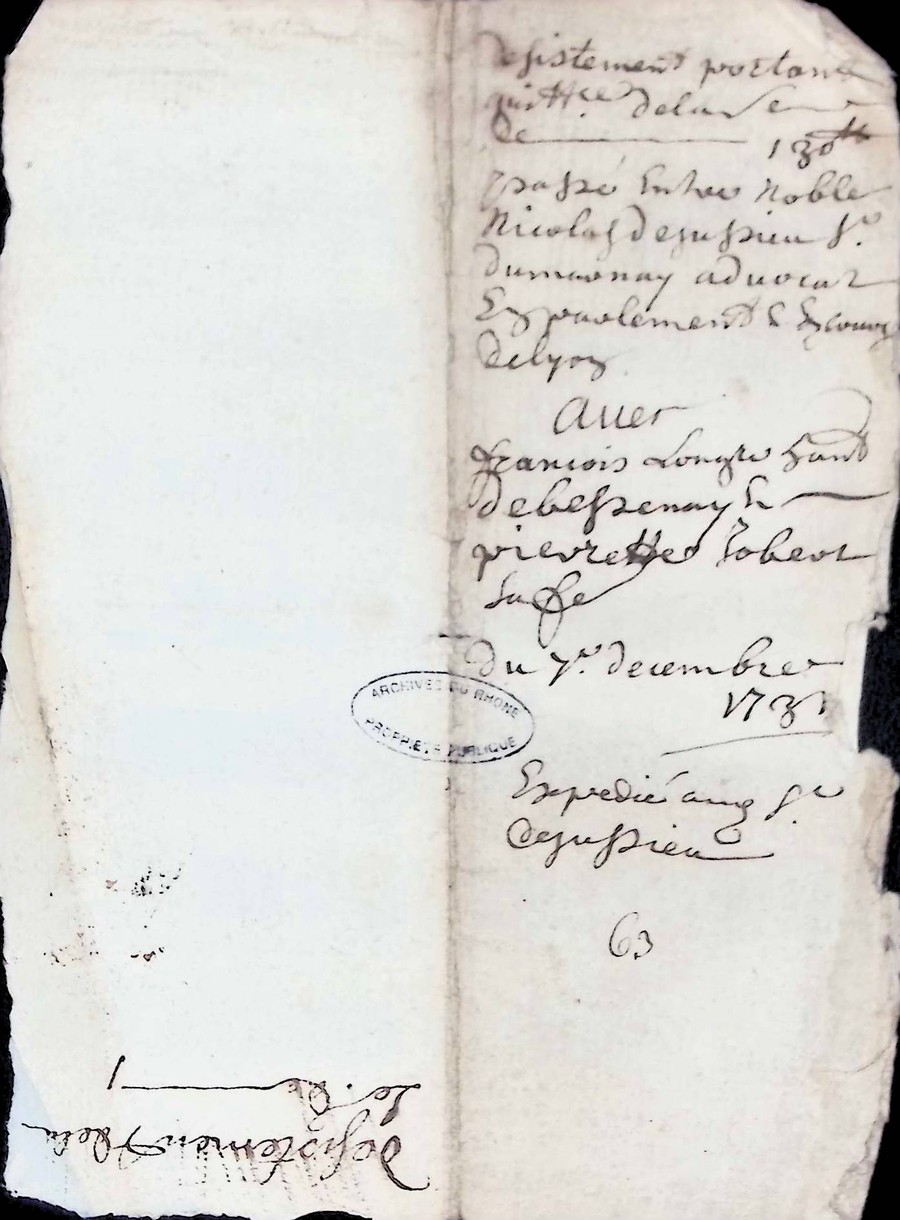 desistement portant
quittce. dela so
de 130tt
passé Entre Noble
Nicolas Dejussieu Sr.
dumarnay advocat
En parlement &
delyon
Avec
françois Longre
debessenay &
pierrette Robert
sa fe
du 7e. decembre
173
Expedié aud Sr
dejussieu
63
ARCHIVES DU RHONE
PROPRIETE PUBLIQUE
desistement dela
de